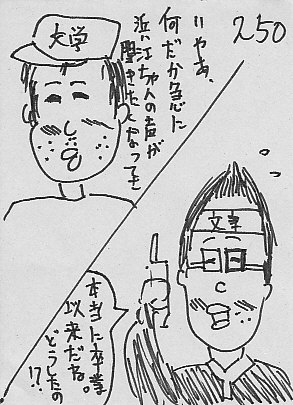 250
いやあ、
何だか急に
浜江ちゃんの声が
聞きたくなってさ
大学
文学
本当に卒業
以来だね。
どうしたの
!?